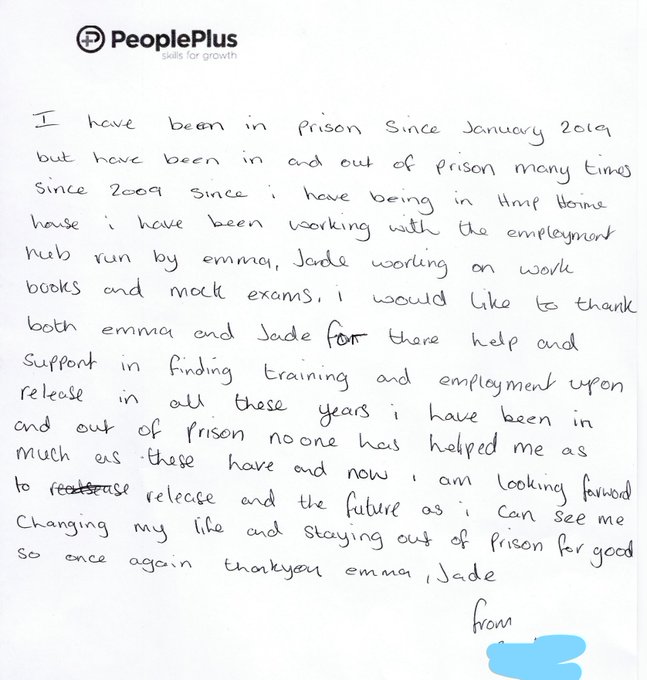 PeoplePlus
skills for growth
I have been in prison since January 2019
but have been in and out of prison many times
since 2009 since i have being in Hmp Holme
house i have been working with the employment
hub run by emma, Jade working on work
books and mock exams. i would like to thank
both emma and Jade for there help and
support in finding training and employment upon
release in all these years i have been in
and out of prison no one has helped me as
much as these have and now i am looking forword
to release and the future as i can see me
changing my life and staying out of prison for good
so once again thankyou emma, Jade
from